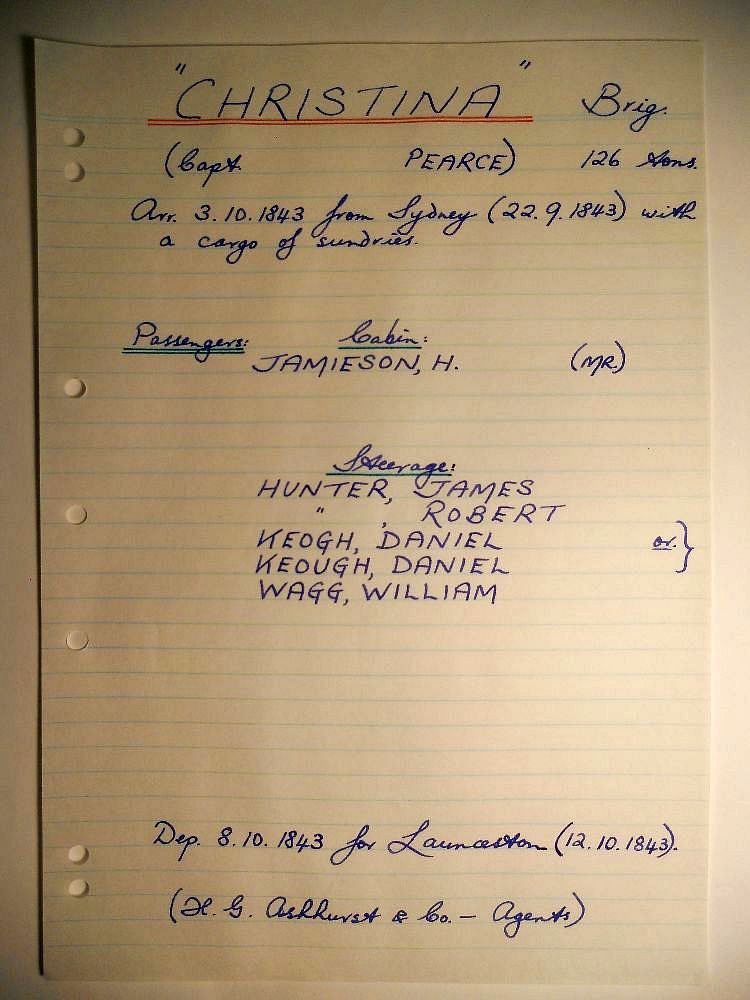 "CHRISTINA" Brig.
(Capt. PEARCE) 126 tons.
Arr. 3.10.1843 from Sydney (22.9.1843) with
a cargo of sundries.
Passengers: Cabin:
JAMIESON, H. (MR.)
Steerage:
HUNTER, JAMES
" , ROBERT
KEOGH, DANIEL or.}
KEOUGH, DANIEL
WAGG, WILLIAM
Dep. 8.10.1843 for Launceston (12.10.1843).
(H. G. Ashhurst & Co. - Agents)